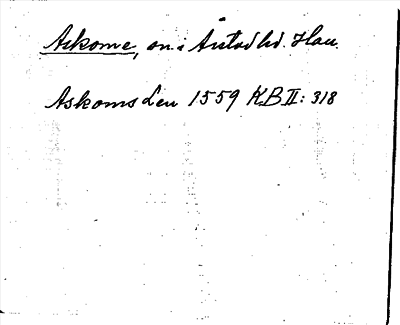 Askome, sn. i Årstad hd. Hall.
Askoms Len 1559 KB II: 318